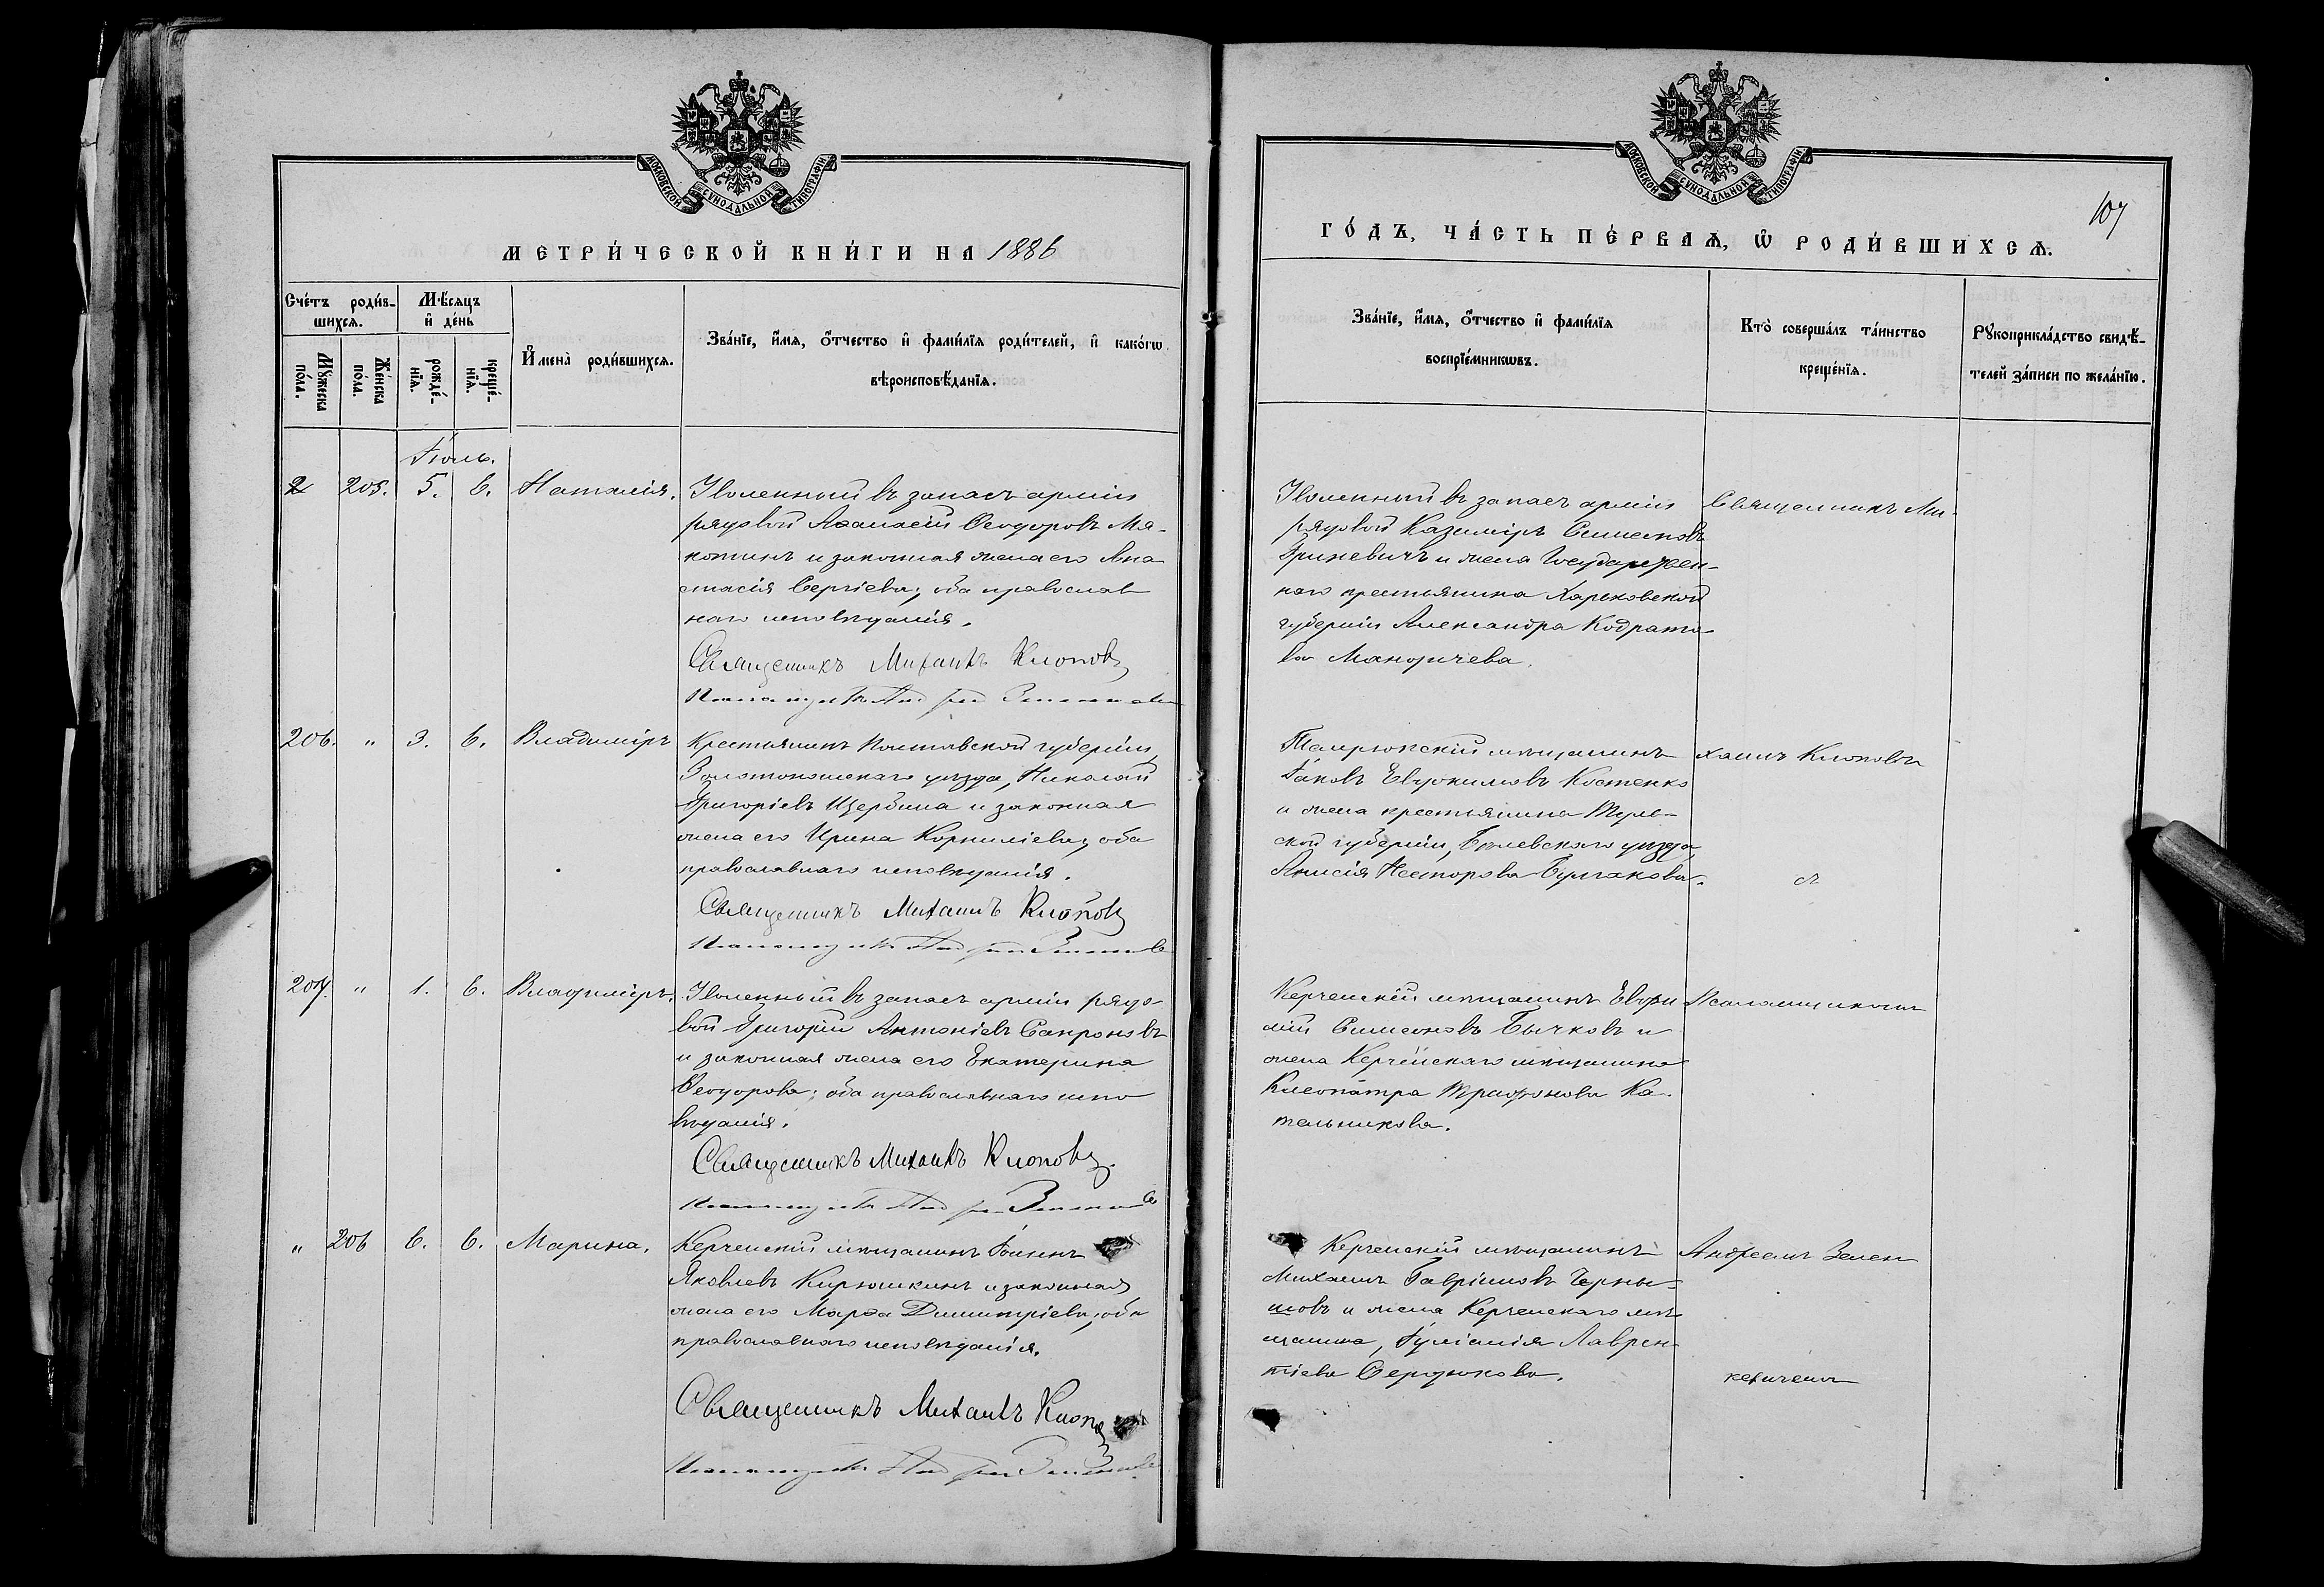 МОСКОВСКОЙ СѴНОДАЛЬНОЙ ТИПОГРАФІИ
МЕТРИ́ЧЕСКОЙ КНИ́ГИ НА 1886
Сче́тъ роди́в-
шихсѧ.
Мѣ́сѧцъ
и҆ де́нь
Мꙋ́жеска
по́ла.
Же́нска
по́ла.
рожде́-
нїѧ.
креще́-
нїѧ.
И҆мена̀ роди́вшихсѧ.
Зва́нїе, и҆́мѧ, ѻ҆́тчество и҆ фамі́лїѧ роди́телей, и҆ како́гѡ
вѣроисповѣ́данїѧ.
Іюль.
205. 5. 6. Наталія. Уволенный въ запасъ арміи
рядовой Аѳанасій Ѳеодоровъ Мя-
котинъ и законная жена его Ана
стасія Сергіева; оба православ
наго исповѣданія.
Священникъ Михаилъ Клоповъ
206. " 3. 6. Владиміръ Крестьянинъ Полтавской губерніи,
Золотоношскаго уѣзда, Николай
Григоріевъ Щербина и законная
жена его Ирина Корниліева; оба
православнаго исповѣданія.
Священникъ Михаилъ Клоповъ
207. " 1. 6. Владиміръ. Уволенный въ запасъ арміи рядо
вой Григорій Антоніевъ Сапроновъ
и законная жена его Екатерина
Ѳеодорова; оба православнаго испо
вѣданія.
Священникъ Михаилъ Клоповъ.
" 206 6. 6. Марина. Керченскій мѣщанинъ Іоаннъ
Яковлевъ Кирюшкинъ и законная
жена его Марѳа Димитріева; оба
православнаго исповѣданія.
Священникъ Михаилъ Клоповъ
МОСКОВСКОЙ СѴНОДАЛЬНОЙ ТИПОГРАФІИ
107
ГО́ДЪ, ЧА́СТЬ ПЕ́РВАѦ, Ѡ҆ РОДИ́ВШИХСѦ.
Зва́нїе, и҆́мѧ, ѻ҆́тчество и҆ фамі́лїѧ
воспрїе́мникѡвъ.
Кто̀ соверша́лъ та́инство
креще́нїѧ.
Рꙋкоприкла́дство свидѣ́-
телей за́писи по жела́нїю.
Уволенный въ запасъ арміи Священникъ Ми-
рядовой Казиміръ Симеоновъ
Гриневичъ и жена Государствен-
наго крестьянина Харьковской
губерніи Александра Кодрато-
ва
Темрюкскій мѣщанинъ хаилъ Клоповъ
Іаковъ Евдокимовъ Костенко
и жена крестьянина Туль-
ской губерніи, Бѣлевскаго уѣзда,
Анисія Несторова Булгакова. съ
Керченскій мѣщанинъ Евѳи Псаломщикомъ
мій Симеоновъ Бычковъ и
жена Керченскаго мѣщанина
Клеопатра Трифонова Ка-
тельникова.
Керченскій мѣщанинъ Андреемъ Зелен
Михаилъ Гавріиловъ Черны-
шовъ и жена Керченскаго мѣ
щанина, Іуліанія Лаврен-
тіева Сердюкова. кевичемъ